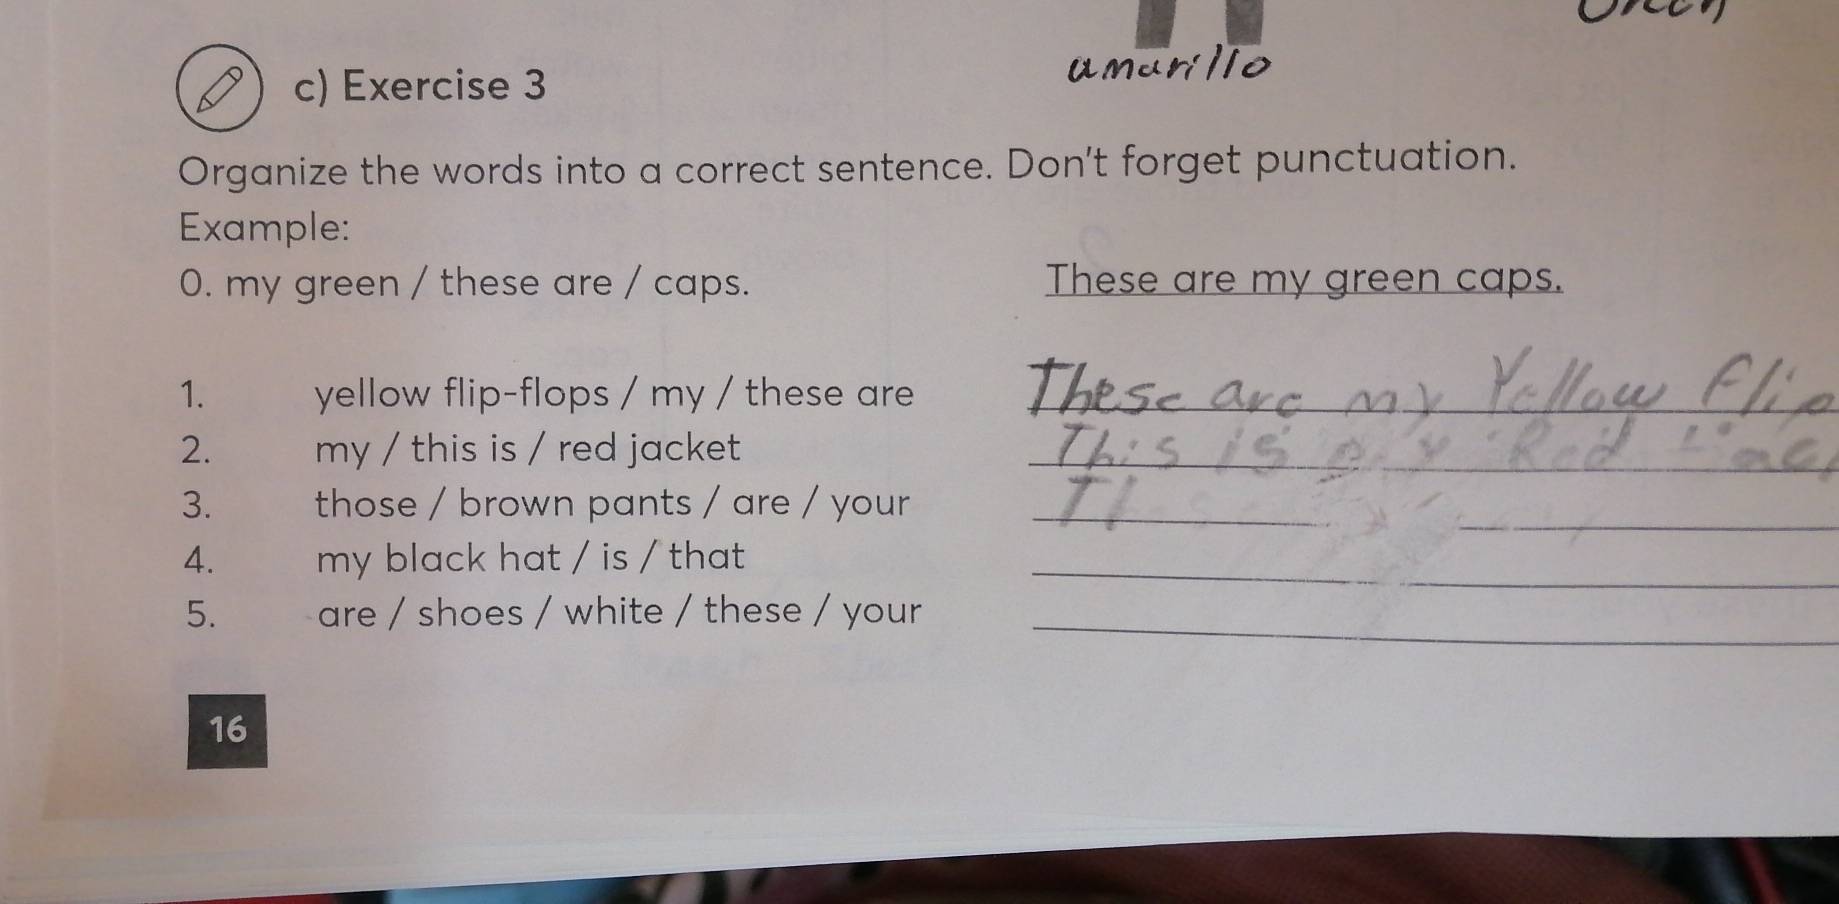 amarillo
c) Exercise 3
Organize the words into a correct sentence. Don't forget punctuation.
Example:
0. my green / these are / caps. These are my green caps.
1. yellow flip-flops / my / these are These are my Yellow Flip
2. my / this is / red jacket This is my Red
3. those / brown pants / are / your
4. my black hat / is / that
5. are / shoes / white / these / your
16